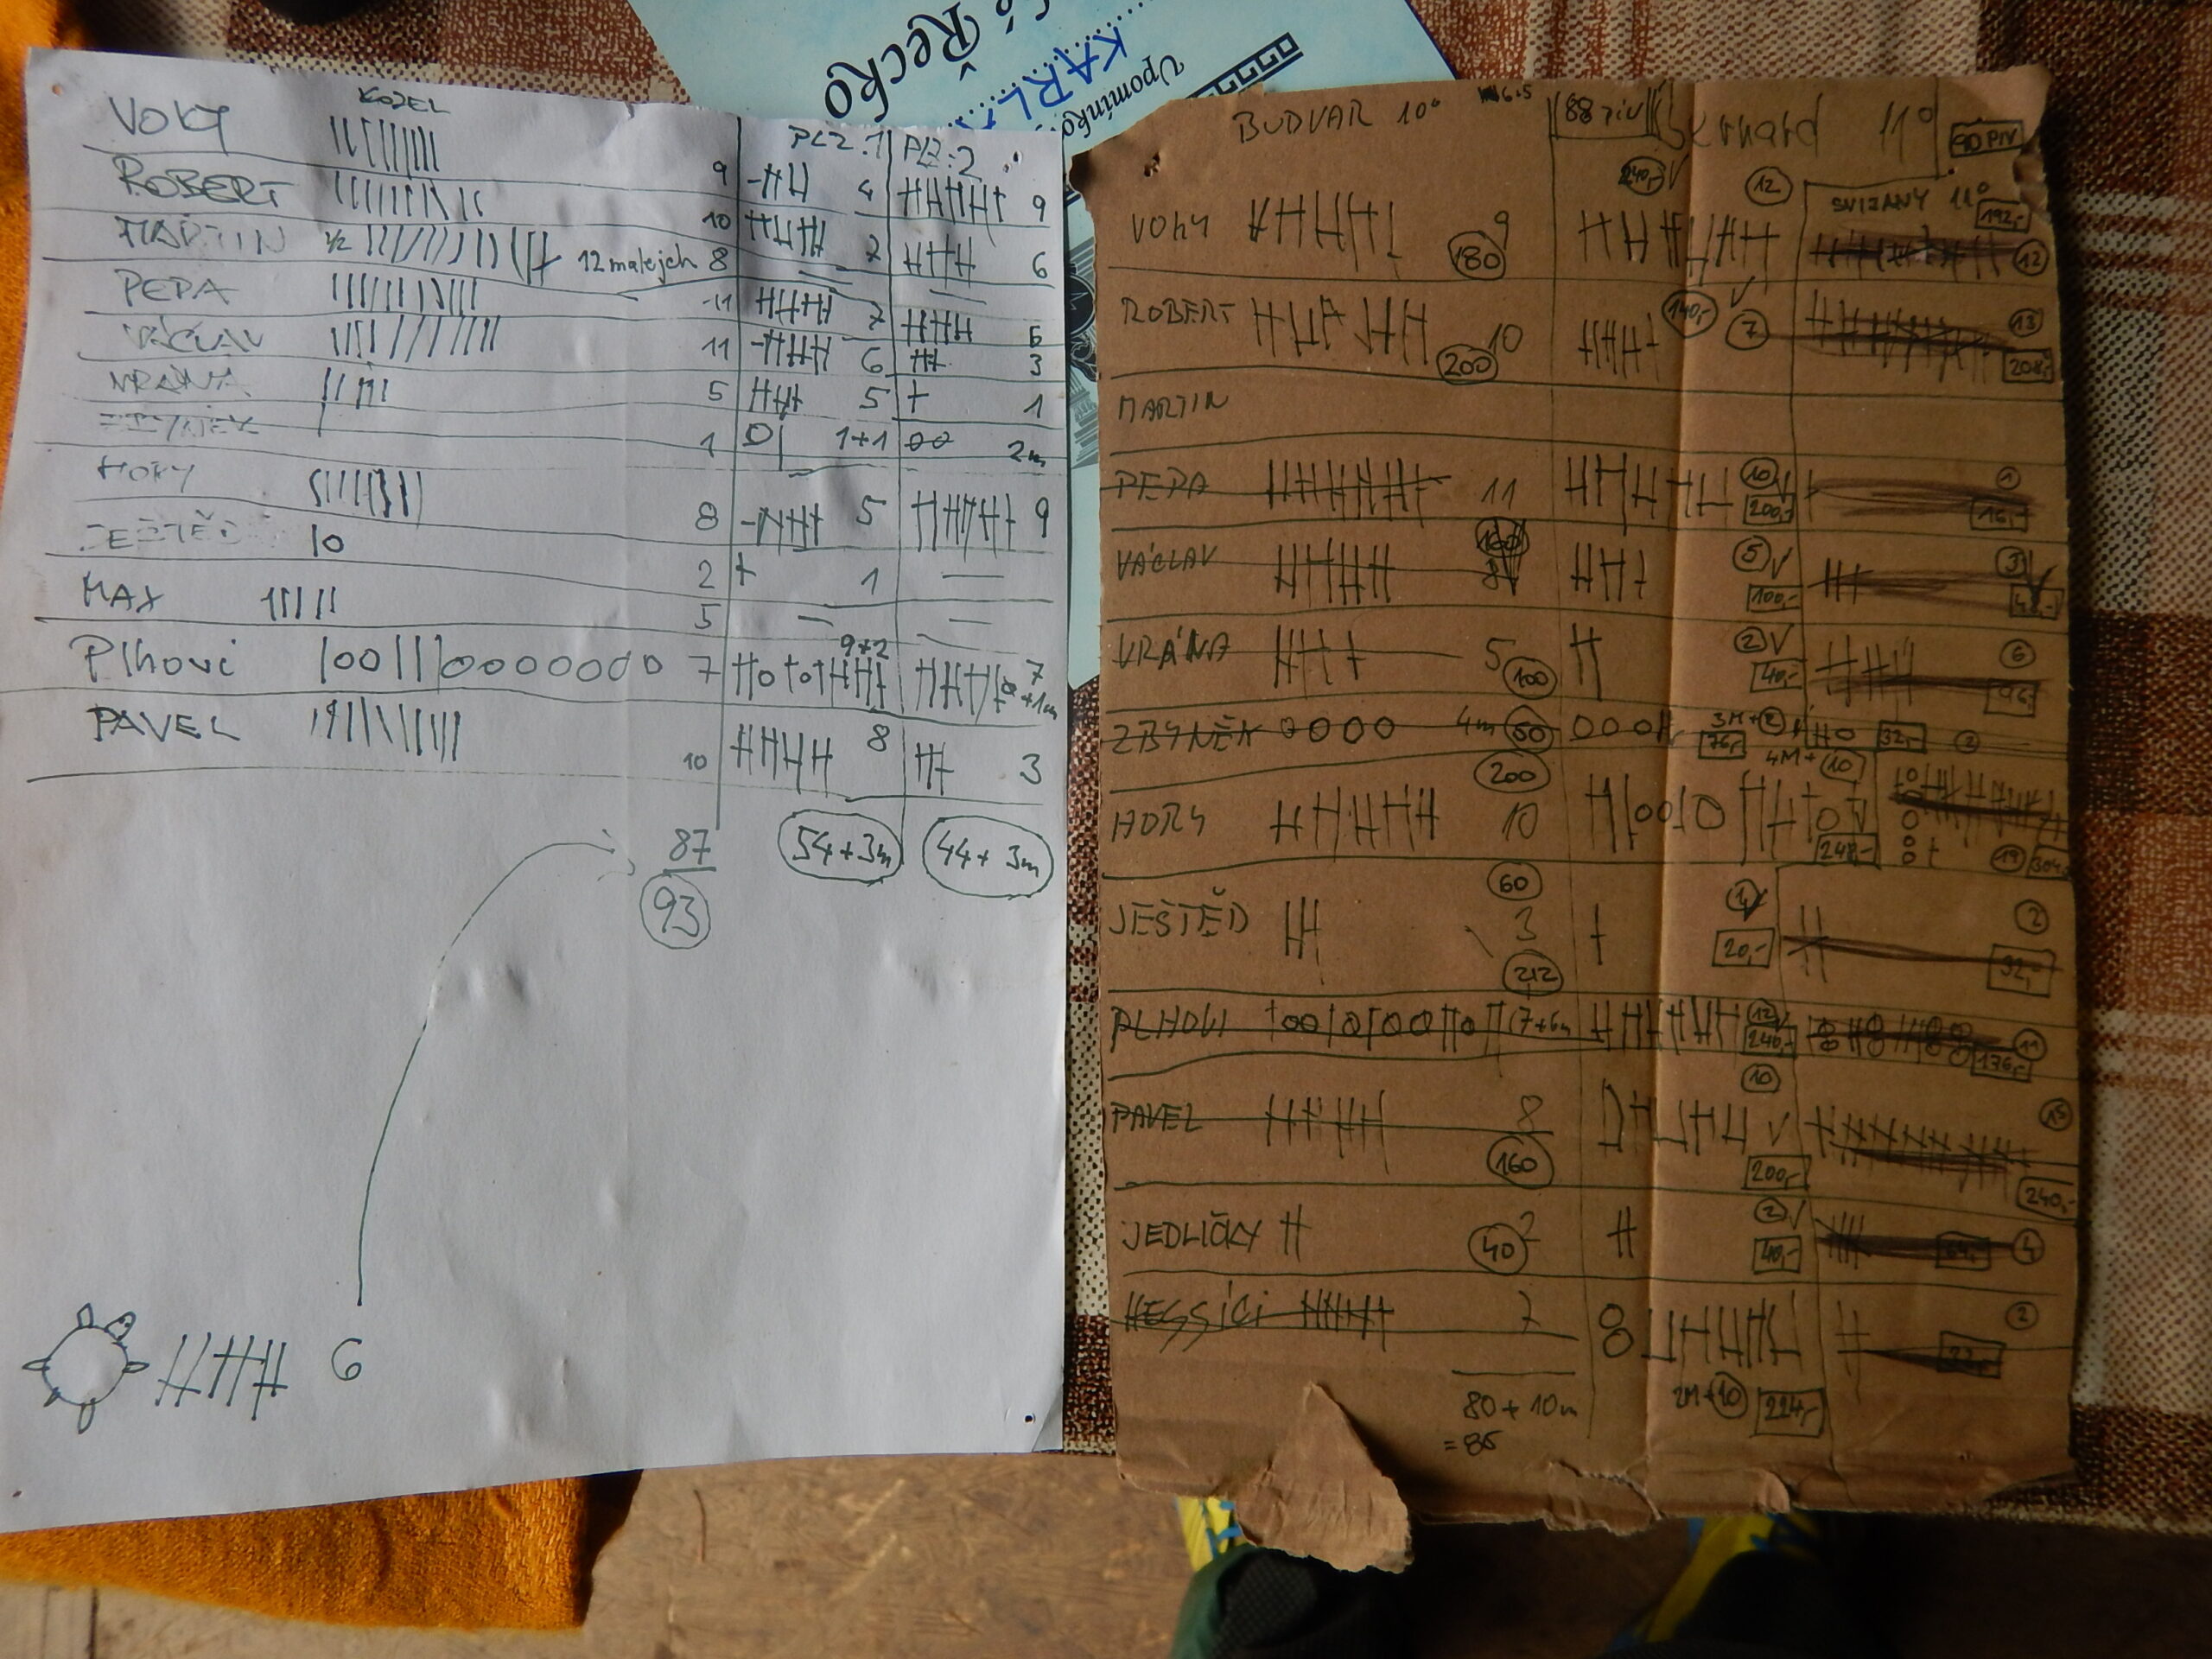 Řecko
KARL
Upomínko
KOZEL
PLZ.1 PLZ.2
VOKY 9 4 9
ROBERT 10 7 6
MARTIN 1/2 12 malejch 8
PEPA 11 7 6
VÁCLAV 11 6 3
VRÁNA 5 5 1
ZBYNĚK 1 1+1 2m
HORY 8 5 9
JEŠTĚD 2 1
MAX 5
Plhovi 7 9+2 7 +1m
PAVEL 10 8 3
87 54+3m 44+3m
93
6
BUDVAR 10° 88 PIV Bernard 11° 90 PIV
SVIJANY 11°
VOKY 9 180 240,- 12 192,- 12
ROBERT 10 200 140,- 7 13 208,-
MARTIN
PEPA 11 10 200,- 1 16,-
VÁCLAV 160 8 5 100,- 3 48,-
VRÁNA 5 100 2 40,- 6 96,-
ZBYNĚK 4m 50 3M+2 76,- 32,- 2
HORY 200 10 4M+10 248,- 19 304,-
JEŠTĚD 60 3 1 20,- 2 32,-
PLHOVI 212 7+6m 12 240,- 11 176,-
PAVEL 8 160 10 200,- 15 240,-
JEDLIČKY 2 40 2 40,- 64,- 4
HESSÍCI 7 2M+10 224,- 2 32,-
80+10m
=85